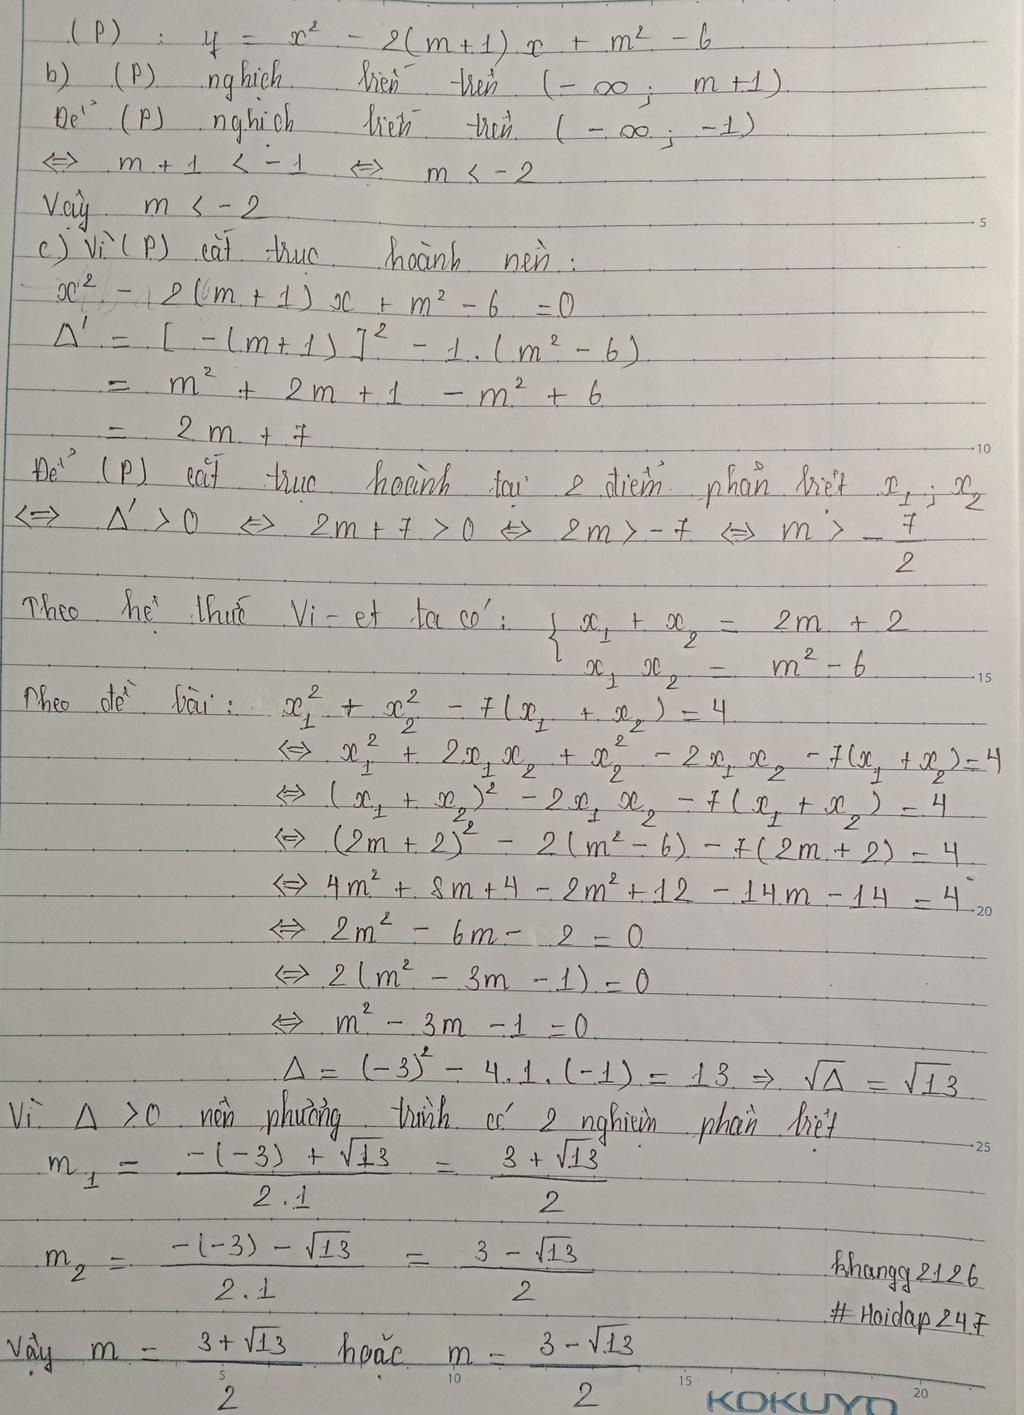 (P) : y = x² - 2(m+1)x + m² - 6
b) (P) nghịch biến trên (-∞; m+1)
Để (P) nghịch biến trên (-∞; -1)
⇔ m + 1 < -1 ⇔ m < -2
Vậy m < -2
5
c) Vì (P) cắt trục hoành nên:
x² - 2(m+1)x + m² - 6 = 0
Δ' = [-(m+1)]² - 1.(m² - 6)
= m² + 2m + 1 - m² + 6
= 2m + 7
10
Để (P) cắt trục hoành tại 2 điểm phân biệt x₁; x₂
⇔ Δ' > 0 ⇔ 2m + 7 > 0 ⇔ 2m > -7 ⇔ m > -7/2
Theo hệ thức Vi-et ta có: { x₁ + x₂ = 2m + 2
x₁ x₂ = m² - 6
15
Theo đề bài: x₁² + x₂² - 7(x₁ + x₂) = 4
⇔ x₁² + 2x₁x₂ + x₂² - 2x₁x₂ - 7(x₁ + x₂) = 4
⇔ (x₁ + x₂)² - 2x₁x₂ - 7(x₁ + x₂) = 4
⇔ (2m + 2)² - 2(m² - 6) - 7(2m + 2) = 4
⇔ 4m² + 8m + 4 - 2m² + 12 - 14m - 14 = 4
20
⇔ 2m² - 6m - 2 = 0
⇔ 2(m² - 3m - 1) = 0
⇔ m² - 3m - 1 = 0
Δ = (-3)² - 4.1.(-1) = 13 ⇒ √Δ = √13
Vì Δ > 0 nên phương trình có 2 nghiệm phân biệt
25
m₁ = (-(-3) + √13)/(2.1) = (3 + √13)/2
m₂ = (-(-3) - √13)/(2.1) = (3 - √13)/2
khangg2126
#Hoidap247
Vậy m = (3 + √13)/2 hoặc m = (3 - √13)/2
5 10 15 20
KOKUYO